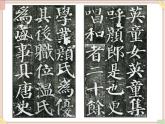 英童女英童集
呼顏郎是也更
唱和者二十餘
學業顏氏為優
其後職位溫氏
為盛事具唐史